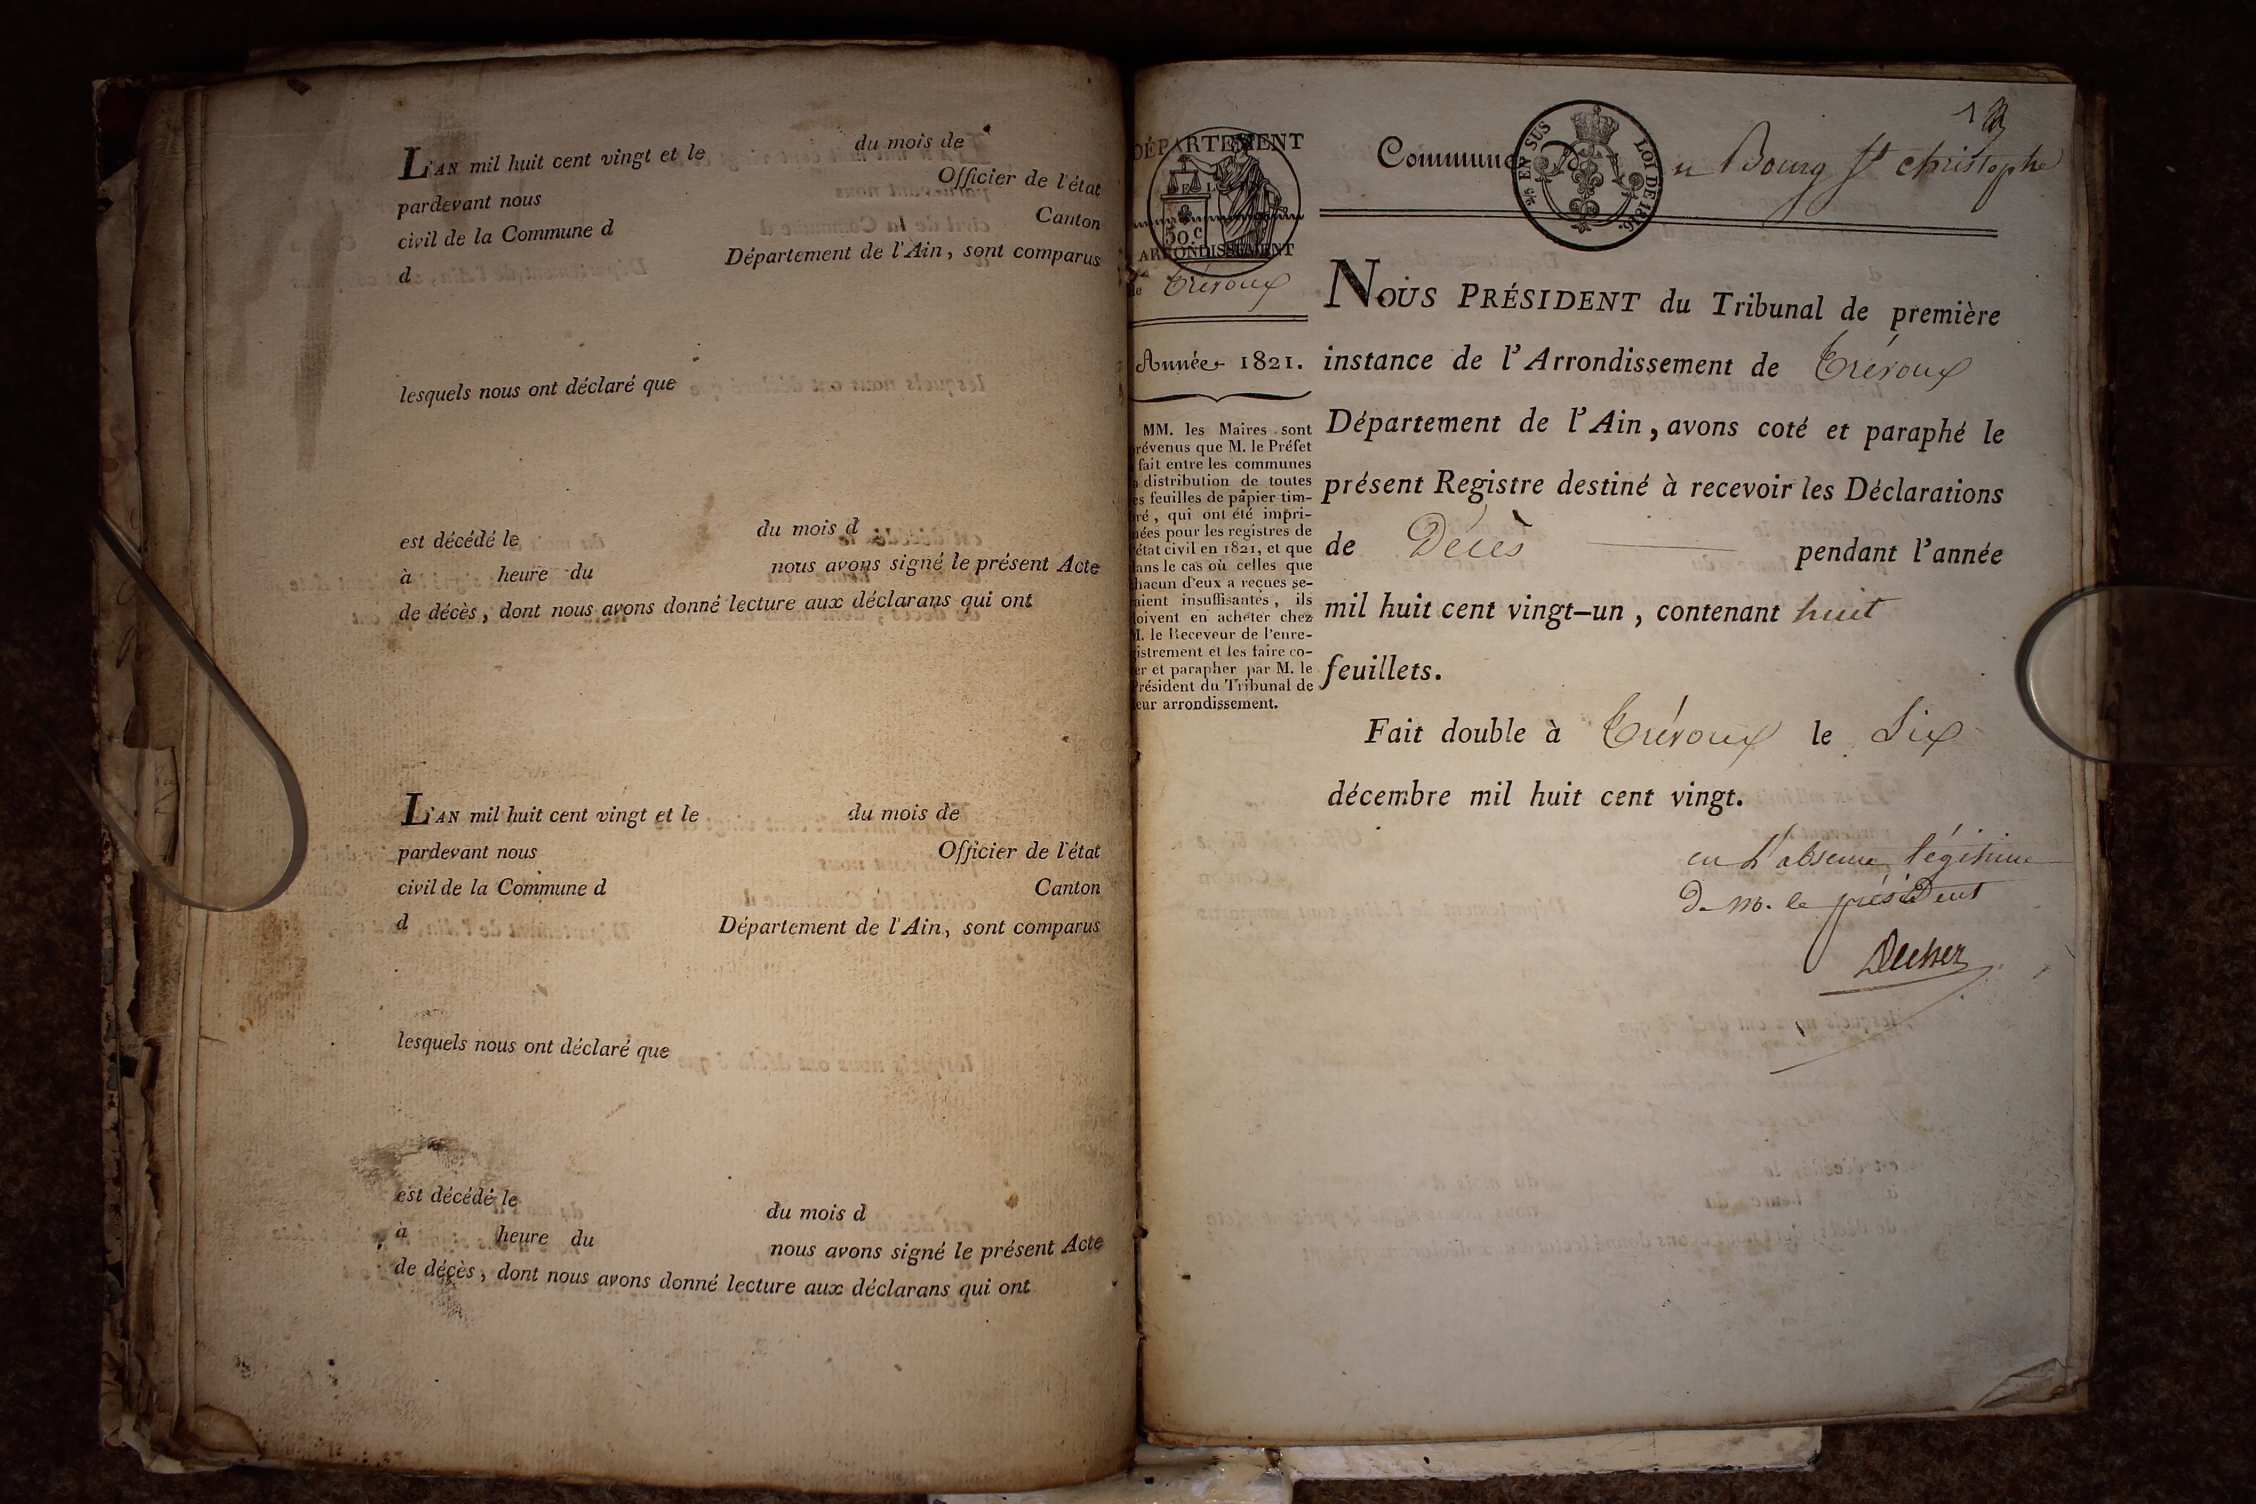 L'AN mil huit cent vingt et le du mois de
pardevant nous Officier de l'état
civil de la Commune d Canton
d Département de l'Ain, sont comparus
lesquels nous ont déclaré que
est décédé le du mois d
à heure du nous avons signé le présent Acte
de décès, dont nous avons donné lecture aux déclarans qui ont
L'AN mil huit cent vingt et le du mois de
pardevant nous Officier de l'état
civil de la Commune d Canton
d Département de l'Ain, sont comparus
lesquels nous ont déclaré que
est décédé le du mois d
à heure du nous avons signé le présent Acte
de décès, dont nous avons donné lecture aux déclarans qui ont
DÉPARTEMENT
DE L'
50.c
ARRONDISSEMENT
de Trévoux
Année 1821.
MM. les Maires sont
prévenus que M. le Préfet
fait entre les communes
distribution de toutes
les feuilles de papier tim-
bré, qui ont été impri-
mées pour les registres de
l'état civil en 1821, et que
dans le cas où celles que
chacun d'eux a reçues se-
raient insuffisantes, ils
doivent en acheter chez
M. le Receveur de l'enre-
gistrement et les faire co-
ter et parapher par M. le
Président du Tribunal de
leur arrondissement.
1
Commune Bourg St christophe
EN SUS LOI DE 1816.
NOUS PRÉSIDENT du Tribunal de première
instance de l'Arrondissement de Trévoux
Département de l'Ain, avons coté et paraphé le
présent Registre destiné à recevoir les Déclarations
de Décès pendant l'année
mil huit cent vingt-un, contenant huit
feuillets.
Fait double à Trévoux le Six
décembre mil huit cent vingt.
en L'absence légitime
De m. le président